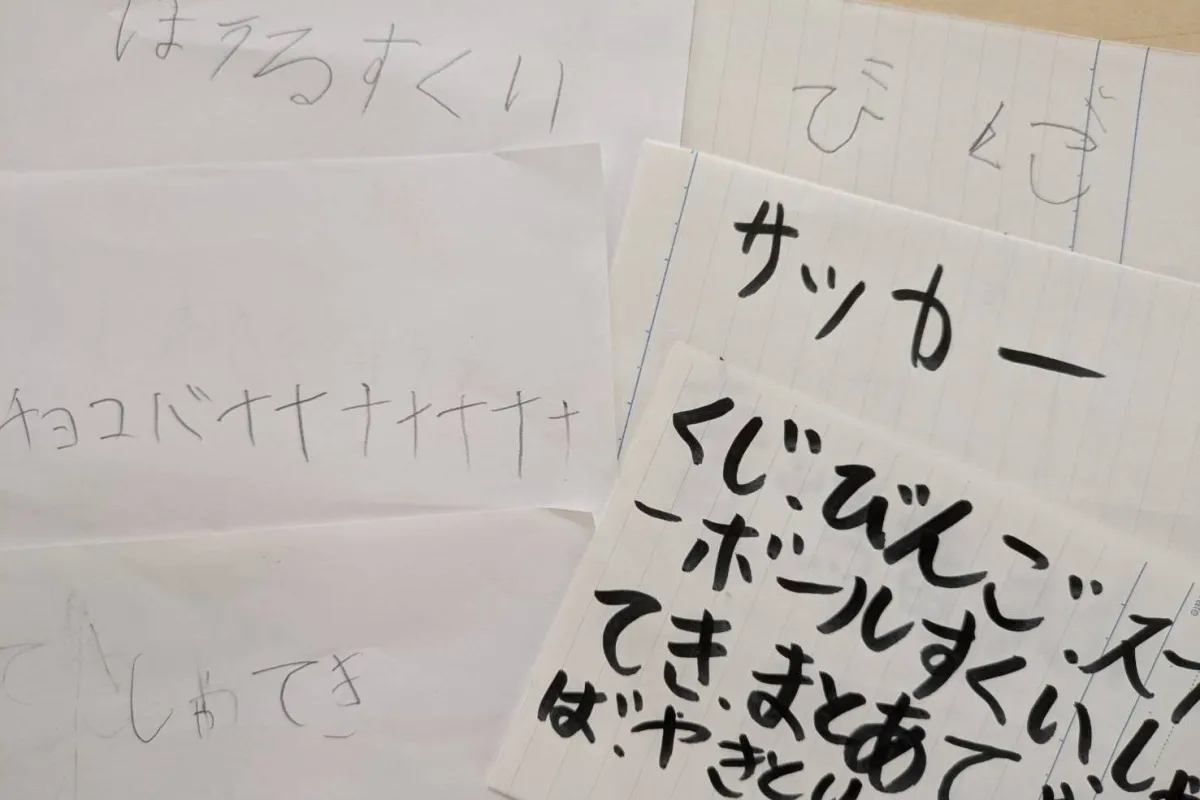 ほうるすくい
びくぎ
サッカー
チョコバナナナナナナナ
しゃてき
くじ.びんご.ス
ーボールすくい.しゃ
てき.まとあて
ば.やきとり